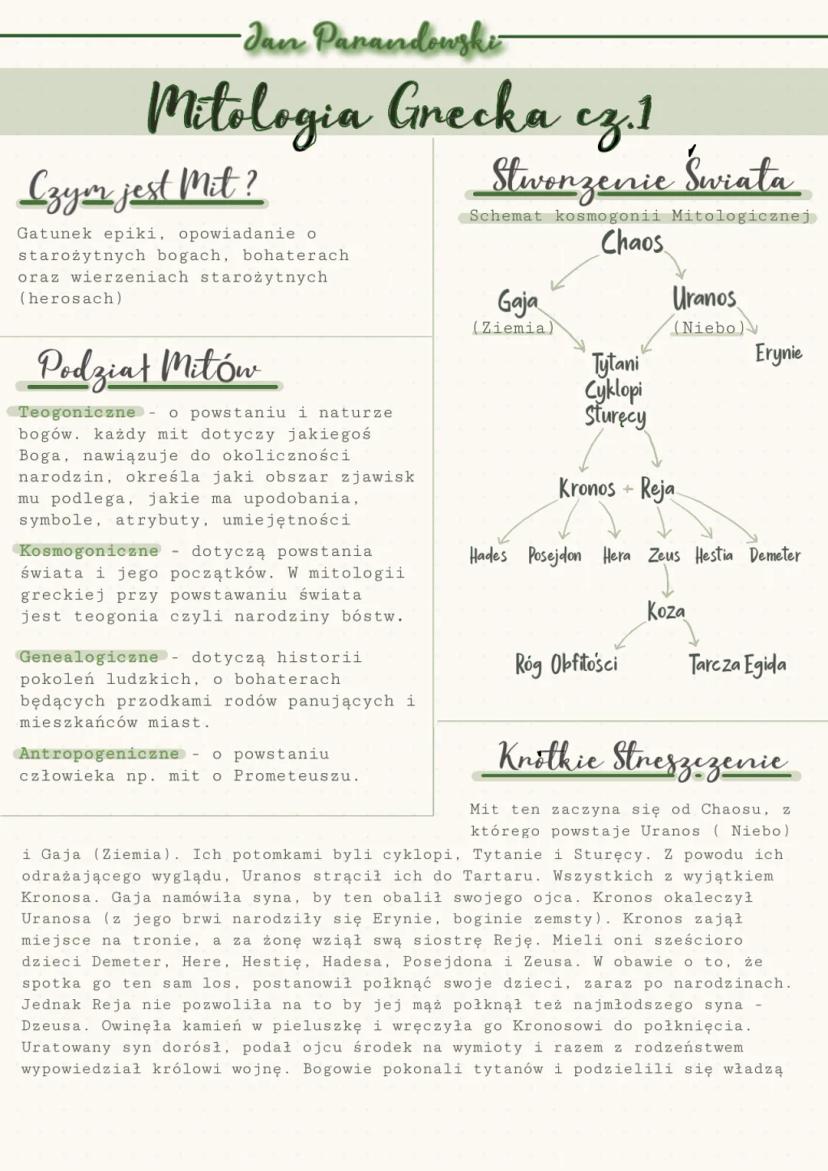 Jan Parandowski
Mitologia Grecka cz.1
Czym jest Mit ?
Gatunek epiki, opowiadanie o
starożytnych bogach, bohaterach
oraz wierzeniach starożytnych
(herosach)
Podział Mitów
Teogoniczne - o powstaniu i naturze
bogów. każdy mit dotyczy jakiegoś
Boga, nawiązuje do okoliczności
narodzin, określa jaki obszar zjawisk
mu podlega, jakie ma upodobania,
symbole, atrybuty, umiejętności
Kosmogoniczne - dotyczą powstania
świata i jego początków. W mitologii
greckiej przy powstawaniu świata
jest teogonia czyli narodziny bóstw.
Genealogiczne - dotyczą historii
pokoleń ludzkich, o bohaterach
będących przodkami rodów panujących i
mieszkańców miast.
Antropogeniczne - o powstaniu
człowieka np. mit o Prometeuszu.
Stworzenie Świata
Schemat kosmogonii Mitologicznej
Chaos
Gaja Uranos
(Ziemia) (Niebo)
Erynie
Tytani
Cyklopi
Sturęcy
Kronos + Reja
Hades Posejdon Hera Zeus Hestia Demeter
Koza
Róg Obfitości Tarcza Egida
Krótkie Streszczenie
Mit ten zaczyna się od Chaosu, z
którego powstaje Uranos ( Niebo)
i Gaja (Ziemia). Ich potomkami byli cyklopi, Tytanie i Sturęcy. Z powodu ich
odrażającego wyglądu, Uranos strącił ich do Tartaru. Wszystkich z wyjątkiem
Kronosa. Gaja namówiła syna, by ten obalił swojego ojca. Kronos okaleczył
Uranosa (z jego brwi narodziły się Erynie, boginie zemsty). Kronos zajął
miejsce na tronie, a za żonę wziął swą siostrę Reję. Mieli oni sześcioro
dzieci Demeter, Here, Hestię, Hadesa, Posejdona i Zeusa. W obawie o to, że
spotka go ten sam los, postanowił połknąć swoje dzieci, zaraz po narodzinach.
Jednak Reja nie pozwoliła na to by jej mąż połknął też najmłodszego syna -
Dzeusa. Owinęła kamień w pieluszkę i wręczyła go Kronosowi do połknięcia.
Uratowany syn dorósł, podał ojcu środek na wymioty i razem z rodzeństwem
wypowiedział królowi wojnę. Bogowie pokonali tytanów i podzielili się władzą